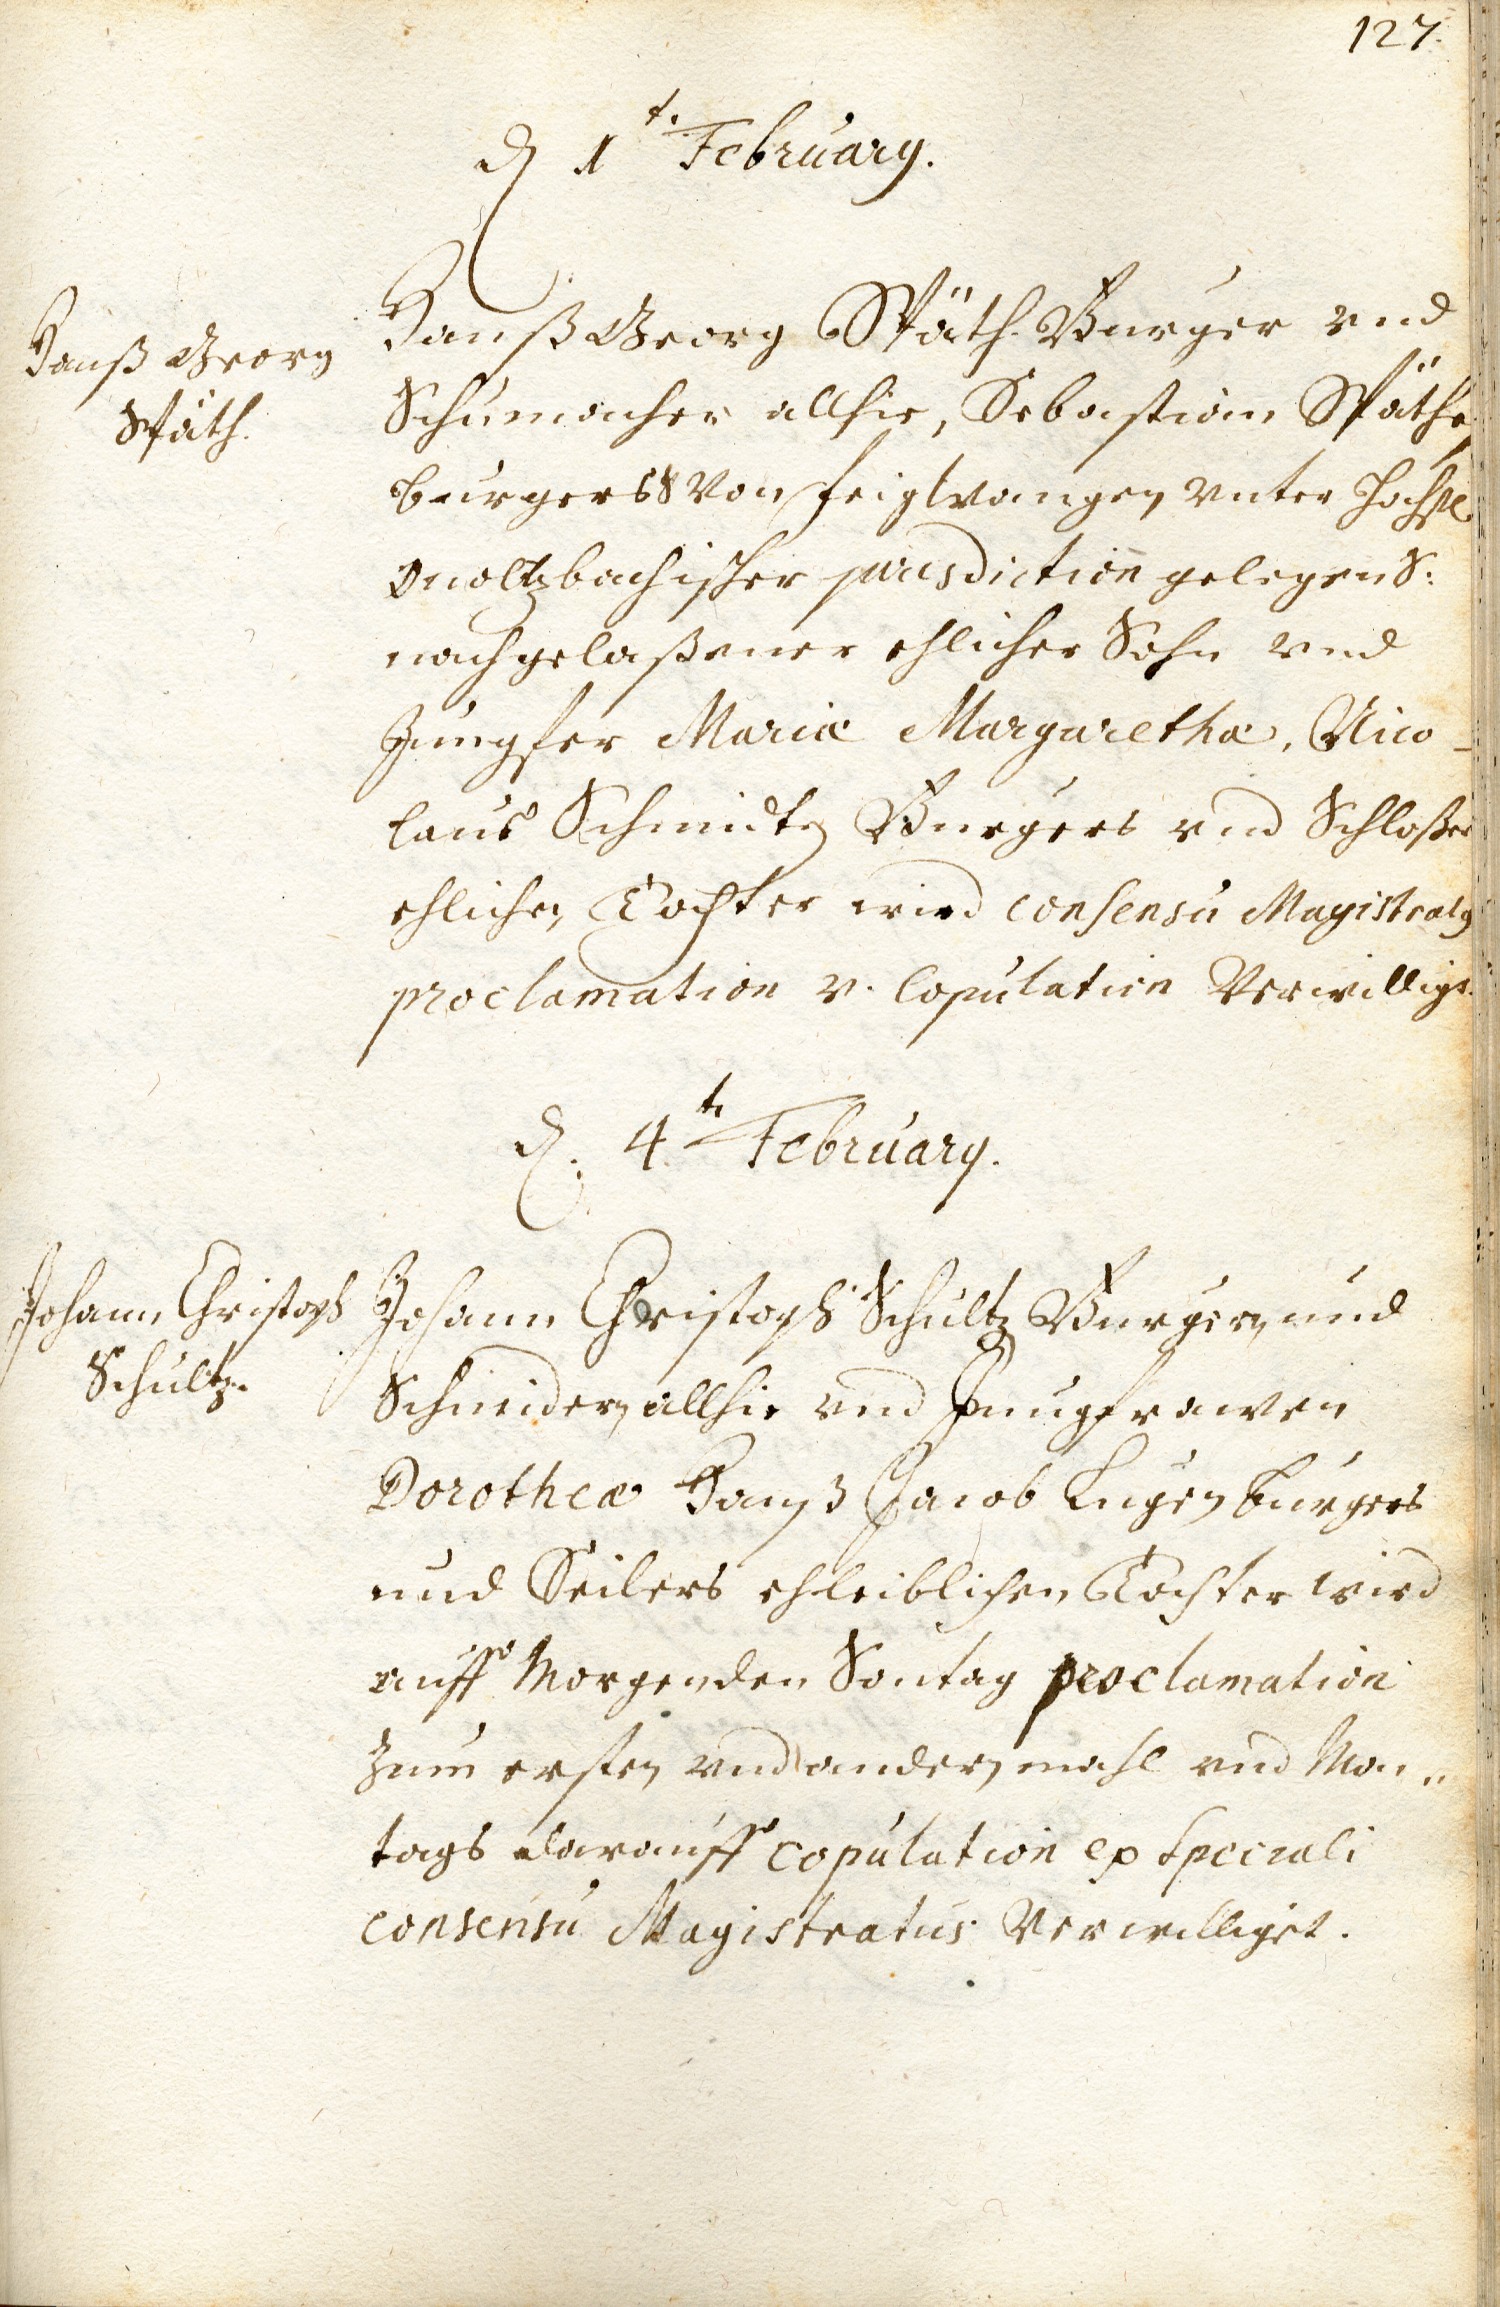 127.
d 1t. February.
Hanß Georg
Späth.
Hanß Georg Späth Burger vnd
Schumacher allhie, Sebastian Späths
burgers von feigtwangen vnter hochfl.
Onoltzbachischer jurisdiction gelegen S:
nachgelaßener ehlicher Sohn vnd
Jungfer Mariæ Margarethæ, Nico-
laus Schmidts Burgers vnd Schloßers
ehlichen Tochter wird consensu Magistratus
proclamation v. Copulation Verwilligt.
d. 4t. February.
Johann Christoph
Schultz.
Johann Christoph Schultz Burgern und
Schneidern allhie vnd Jungfrawen
Dorotheæ Hanß Jacob Lugen burgers
und Seilers ehleiblichen Tochter wird
auff Morgenden Sontag proclamation
zum ersten vnd andern mahl vnd Mon„
tags darauff copulation ex speciali
consensu Magistratus Verwilliget.